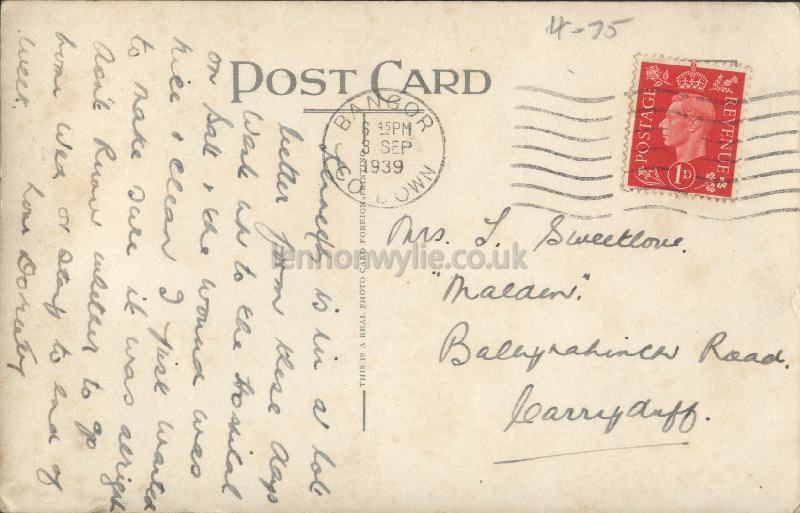 4-75
POST CARD
BANGOR
6 45 PM
8 SEP
1939
CO. DOWN
POSTAGE
REVENUE
1D
THIS IS A REAL PHOTO CARD FOREIGN PRINTING
lennonwylie.co.uk
Mrs. J. Sweetlove.
"Malden".
Ballynahinch Road.
Carryduff.
is in a lot
better form these days
Went up to the Hospital
on Sat & the wound was
nice & clean I just wanted
to make sure it was alright
don't know whether to go
home Wed or stay to end of
week. love Dorothy